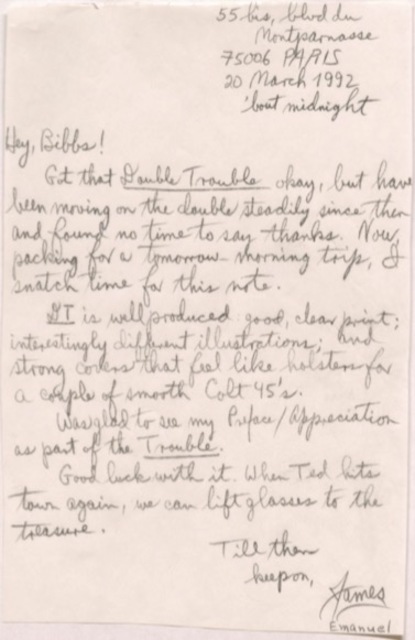 55 bis, blvd du
Montparnasse
75006 PARIS
20 March 1992
'bout midnight
Hey, Bibbs!
Got that Double Trouble okay, but have
been moving on the double steadily since then
and found no time to say thanks. Now,
packing for a tomorrow-morning trip, I
snatch time for this note.
DT is well produced: good, clear print;
interestingly different illustrations; and
strong covers that feel like holsters for
a couple of smooth Colt 45's.
Was glad to see my Preface/Appreciation
as part of the Trouble.
Good luck with it. When Ted hits
town again, we can lift glasses to the
treasure.
Till then
keep on,
James
Emanuel